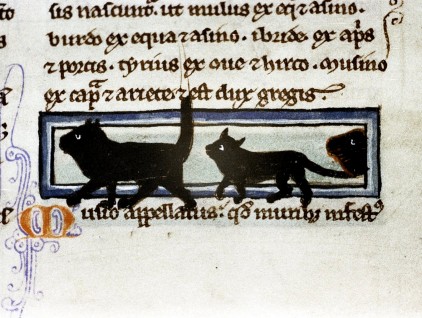 sis nascunt᷑. ut mulus ex eq̄ & asino.
burdo ex equa & asino. ibride. ex ap̄s
& porcis. tyrius ex oue & hirco. musino
ex cap̄a & ariete & est dux gregis.
Musio appellatus: qđ muribꝫ infestꝰ